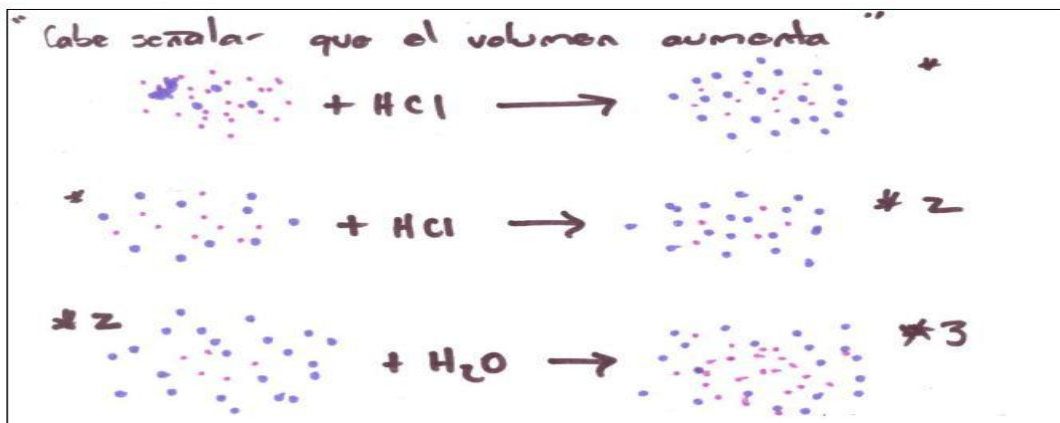 "Cabe señalar que el volumen aumenta"
+ HCl → *
* + HCl → * 2
* 2 + H₂O → * 3